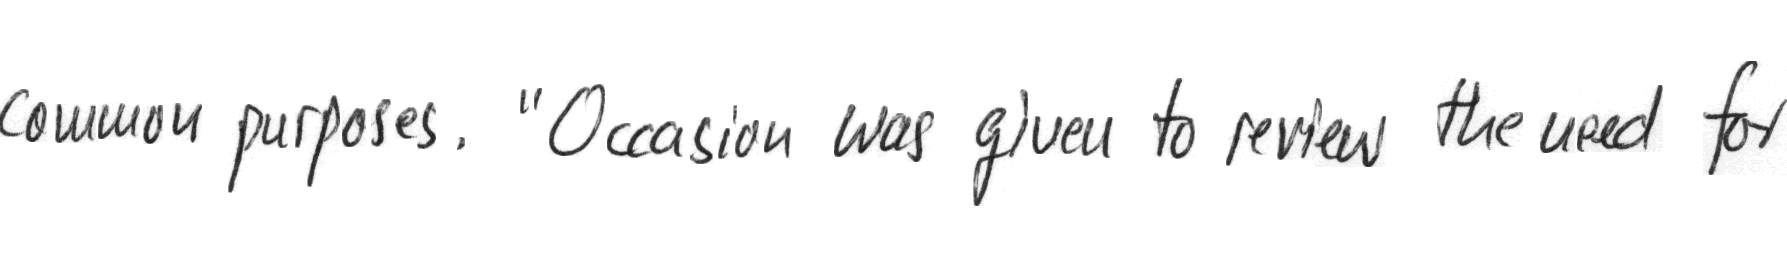 common purposes. "Occasion was given to review the need for